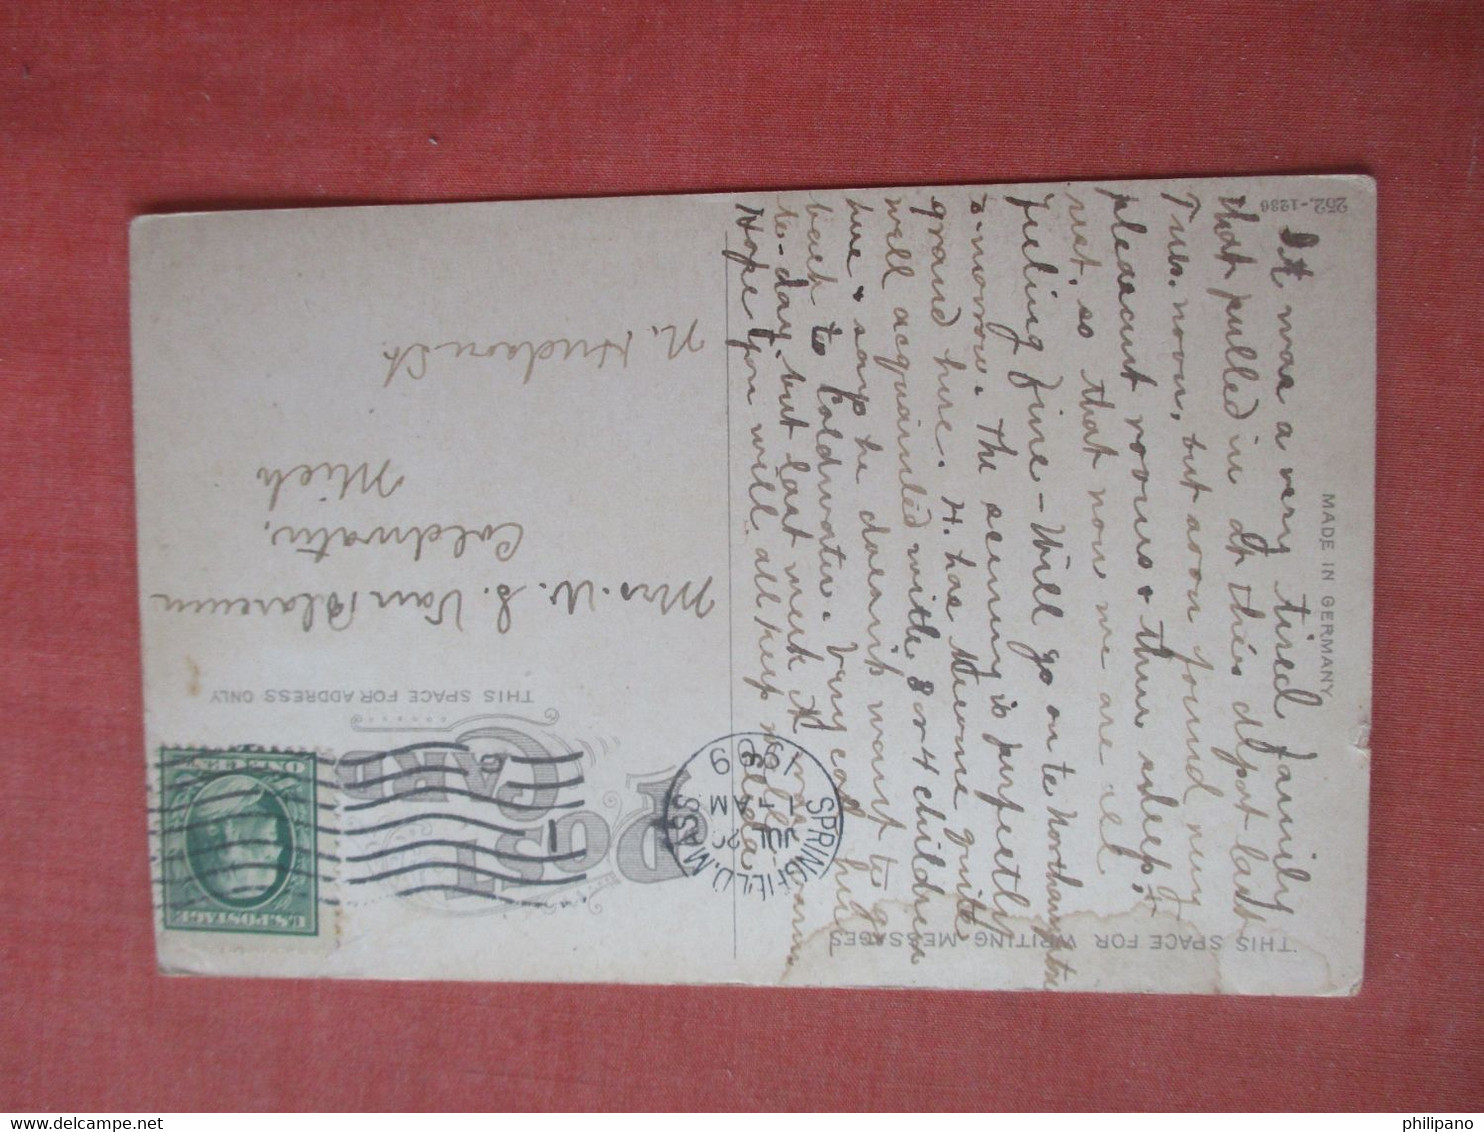 252.-1236
MADE IN GERMANY
THIS SPACE FOR WRITING MESSAGES
It was a very tired family
that pulled in at this depot last
Tues. noon, but soon found nice
pleasant rooms & then sleep &
rest, so that now we are all
feeling fine - Will go on to Northampton
to-morrow. The scenery is perfectly
grand here. H. has become quite
well acquainted with 3 or 4 children
here & says he doesn't want to go
back to Coldwater. Very cool here
to-day, but last week it was warm
Hope you will all keep well
POST CARD
THIS SPACE FOR ADDRESS ONLY
SPRINGFIELD, MASS.
JUL
1-AM
1909
1
U.S. POSTAGE
ONE CENT
Mrs. W. S. Van Blarcum
Coldwater,
Mich
N. Hudson St
philipano